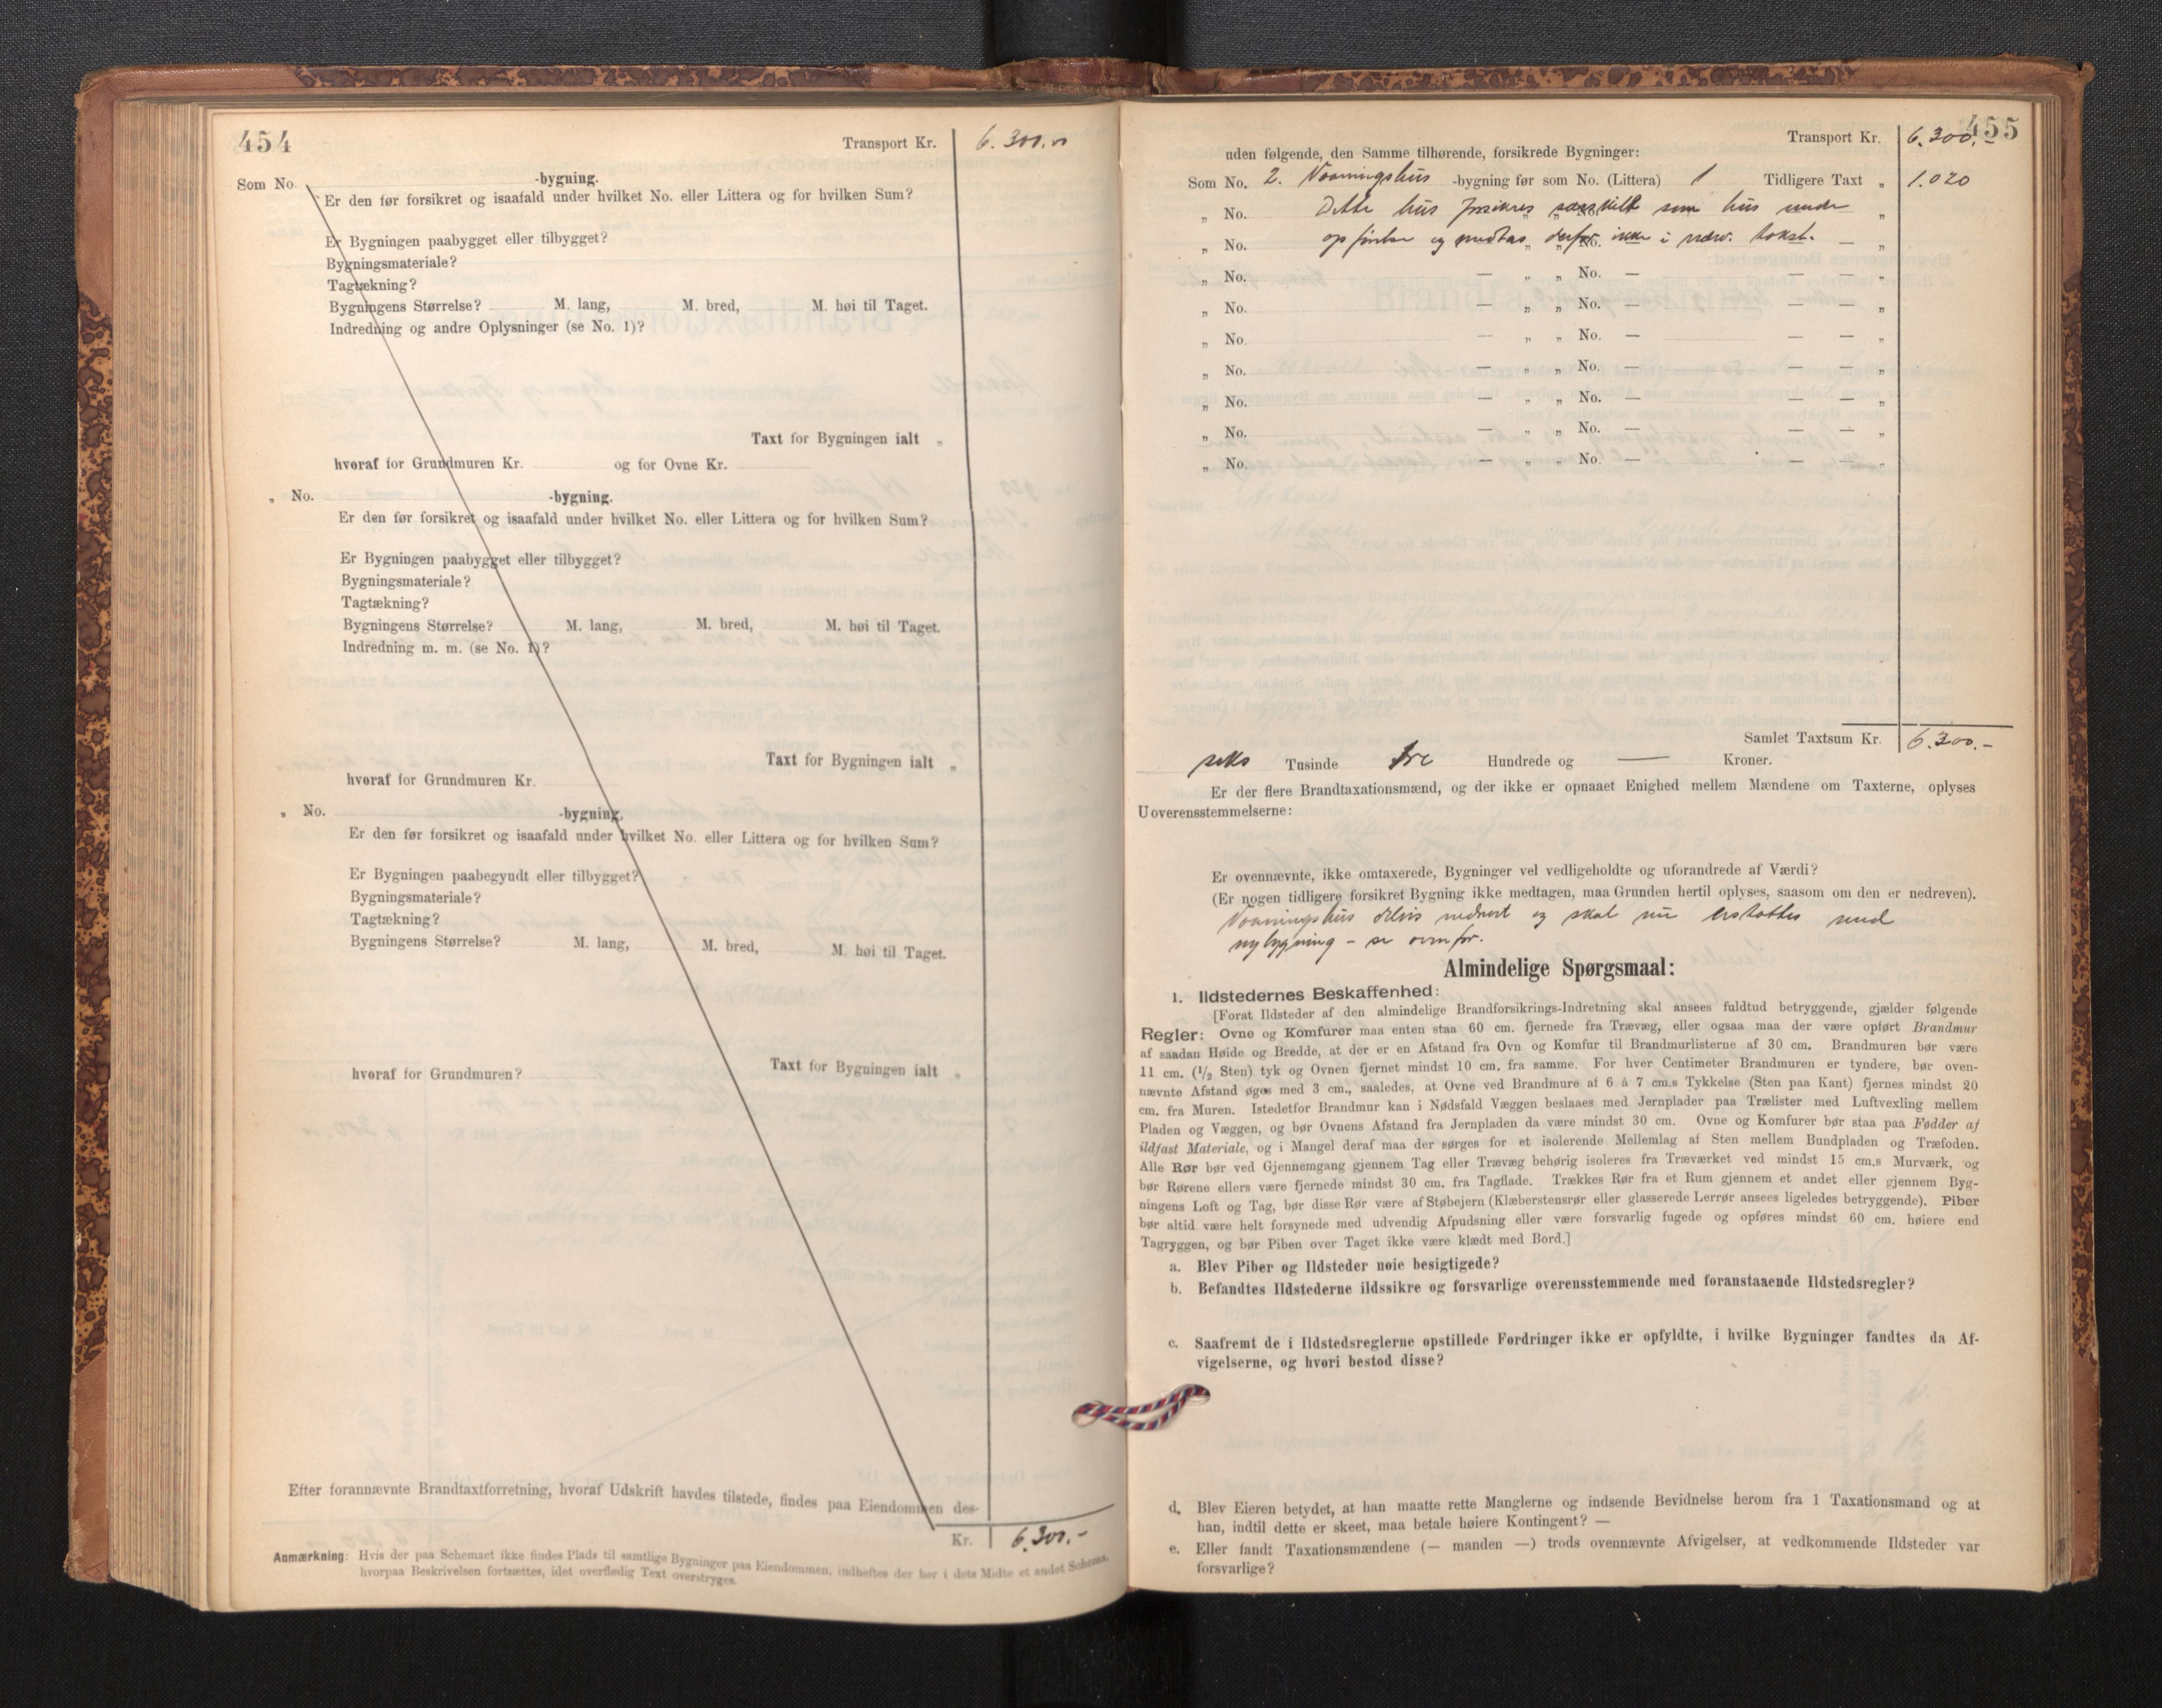 454
Transport Kr. 6.300.00
Som No. -bygning.
Er den før forsikret og isaafald under hvilket No. eller Littera og for hvilken Sum?
Er Bygningen paabygget eller tilbygget?
Bygningsmateriale?
Tagtækning?
Bygningens Størrelse? M. lang, M. bred, M. høi til Taget.
Indredning og andre Oplysninger (se No. 1)?
Taxt for Bygningen ialt „
hvoraf for Grundmuren Kr. og for Ovne Kr.
„ No. -bygning.
Er den før forsikret og isaafald under hvilket No. eller Littera og for hvilken Sum?
Er Bygningen paabygget eller tilbygget?
Bygningsmateriale?
Tagtækning?
Bygningens Størrelse? M. lang, M. bred, M. høi til Taget.
Indredning m. m. (se No. 1)?
Taxt for Bygningen ialt „
hvoraf for Grundmuren Kr.
„ No. -bygning.
Er den før forsikret og isaafald under hvilket No. eller Littera og for hvilken Sum?
Er Bygningen paabegyudt eller tilbygget?
Bygningsmateriale?
Tagtækning?
Bygningens Størrelse? M. lang, M. bred, M. høi til Taget.
Taxt for Bygningen ialt „
hvoraf for Grundmuren?
Efter forannævnte Brandtaxtforretning, hvoraf Udskrift havdes tilstede, findes paa Eiendommen des-
Kr. 6.300.-
Anmærkning: Hvis der paa Schemaet ikke findes Plads til samtlige Bygninger paa Eiendommen, indheftes der her i dets Midte et andet Schema,
hvorpaa Beskrivelsen fortsættes, idet overflødig Text overstryges.
455
Transport Kr. 6.300.-
uden følgende, den Samme tilhørende, forsikrede Bygninger:
Som No. 2. Vaaningshus -bygning før som No. (Littera) 1 Tidligere Taxt „ 1.020
„ No. Dette hus forsikres særskilt som hus under „
„ No. opførelse og medtas derfor ikke i nærv. takst. — „
„ No. — „ „ No. — — — „
„ No. — „ „ No. — — — „
„ No. — „ „ No. — — — „
„ No. — „ „ No. — — — „
„ No. — „ „ No. — — — „
„ No. — „ „ No. — — — „
„ No. — „ „ No. — — — „
Samlet Taxtsum Kr. 6.300.-
seks Tusinde tre Hundrede og — Kroner.
Er der flere Brandtaxationsmænd, og der ikke er opnaaet Enighed mellem Mændene om Taxterne, oplyses
Uoverensstemmelserne:
Er ovennævnte, ikke omtaxerede, Bygninger vel vedligeholdte og uforandrede af Værdi?
(Er nogen tidligere forsikret Bygning ikke medtagen, maa Grunden hertil oplyses, saasom om den er nedreven).
Vaaningshus delvis nedrevet og skal nu erstattes med
nybygning - se ovenfor.
Almindelige Spørgsmaal:
1. Ildstedernes Beskaffenhed:
[Forat Ildsteder af den almindelige Brandforsikrings-Indretning skal ansees fuldtud betryggende, gjælder følgende
Regler: Ovne og Komfurer maa enten staa 60 cm. fjernede fra Trævæg, eller ogsaa maa der være opført Brandmur
af saadan Høide og Bredde, at der er en Afstand fra Ovn og Komfur til Brandmurlisterne af 30 cm. Brandmuren bør være
11 cm. (1/2 Sten) tyk og Ovnen fjernet mindst 10 cm. fra samme. For hver Centimeter Brandmuren er tyndere, bør oven-
nævnte Afstand øges med 3 cm., saaledes, at Ovne ved Brandmure af 6 à 7 cm.s Tykkelse (Sten paa Kant) fjernes mindst 20
cm. fra Muren. Istedetfor Brandmur kan i Nødsfald Væggen beslaaes med Jernplader paa Trælister med Luftvexling mellem
Pladen og Væggen, og bør Ovnens Afstand fra Jernpladen da være mindst 30 cm. Ovne og Komfurer bør staa paa Fødder af
ildfast Materiale, og i Mangel deraf maa der sørges for et isolerende Mellemlag af Sten mellem Bundpladen og Træfoden.
Alle Rør bør ved Gjennemgang gjennem Tag eller Trævæg behørig isoleres fra Træværket ved mindst 15 cm.s Murværk, og
bør Rørene ellers være fjernede mindst 30 cm. fra Tagflade. Trækkes Rør fra et Rum gjennem et andet eller gjennem Byg-
ningens Loft og Tag, bør disse Rør være af Støbejern (Klæberstensrør eller glasserede Lerrør ansees ligeledes betryggende). Piber
bør altid være helt forsynede med udvendig Afpudsning eller være forsvarlig fugede og opføres mindst 60 cm. høiere end
Tagryggen, og bør Piben over Taget ikke være klædt med Bord.]
a. Blev Piber og Ildsteder nøie besigtigede?
b. Befandtes Ildstederne ildssikre og forsvarlige overensstemmende med foranstaaende Ildstedsregler?
c. Saafremt de i Ildstedsreglerne opstillede Fordringer ikke er opfyldte, i hvilke Bygninger fandtes da Af-
vigelserne, og hvori bestod disse?
d. Blev Eieren betydet, at han maatte rette Manglerne og indsende Bevidnelse herom fra 1 Taxationsmand og at
han, indtil dette er skeet, maa betale høiere Kontingent? —
e. Eller fandt Taxationsmændene (— manden —) trods ovennævnte Afvigelser, at vedkommende Ildsteder var
forsvarlige?